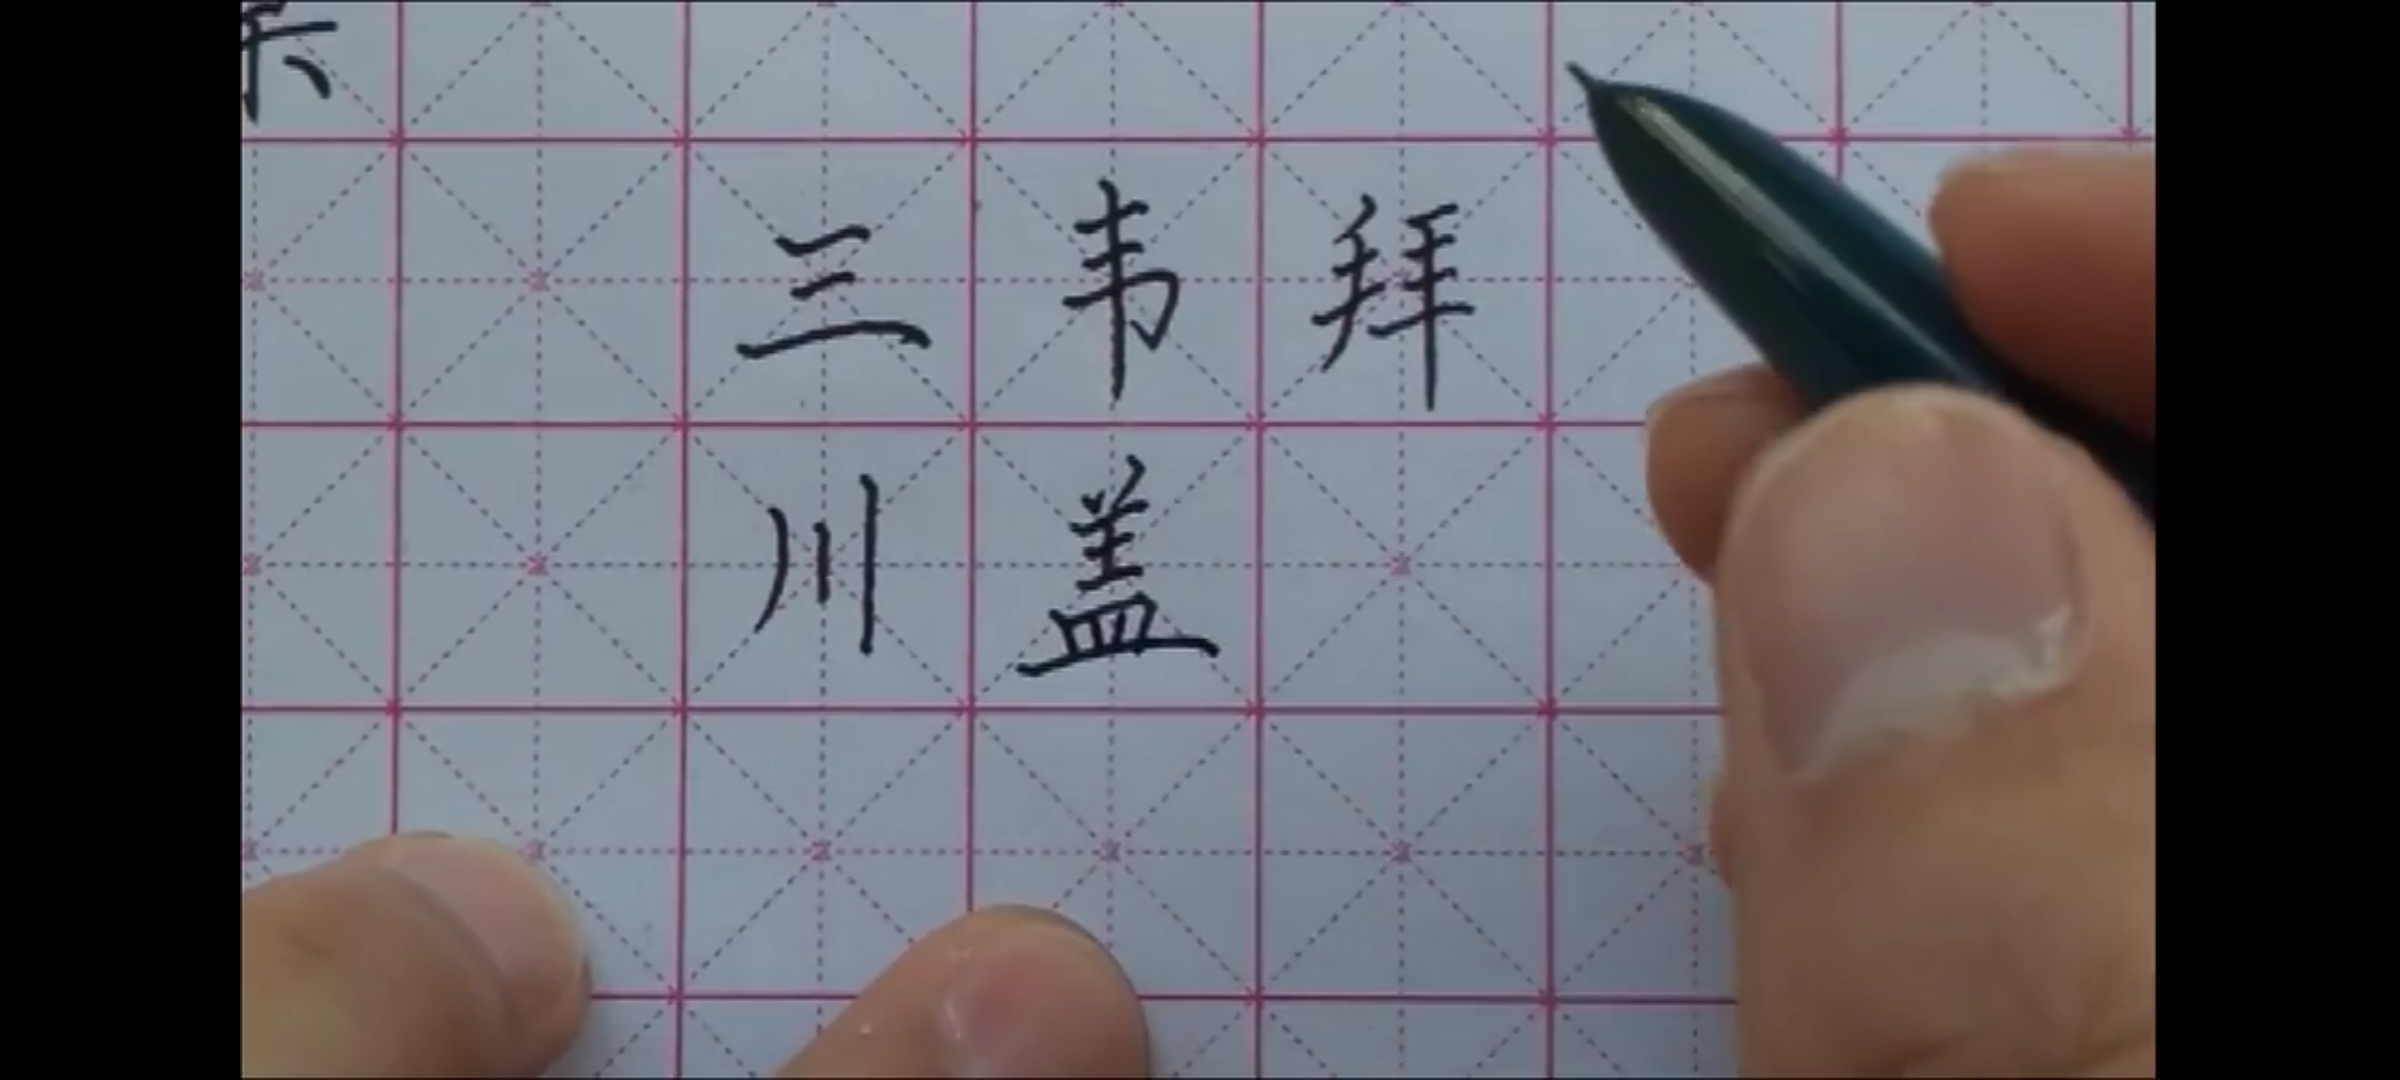 三韦拜
川盖